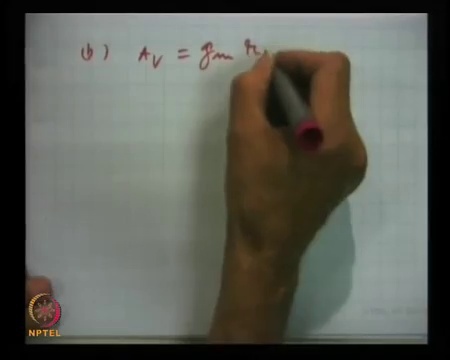 (b) Av = gm r
NPTEL